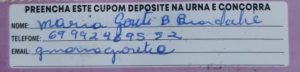 PREENCHA ESTE CUPOM DEPOSITE NA URNA E CONCORRA
NOME: Maria Goreti B
TELEFONE: 69992489552
EMAIL: gmariagoretia